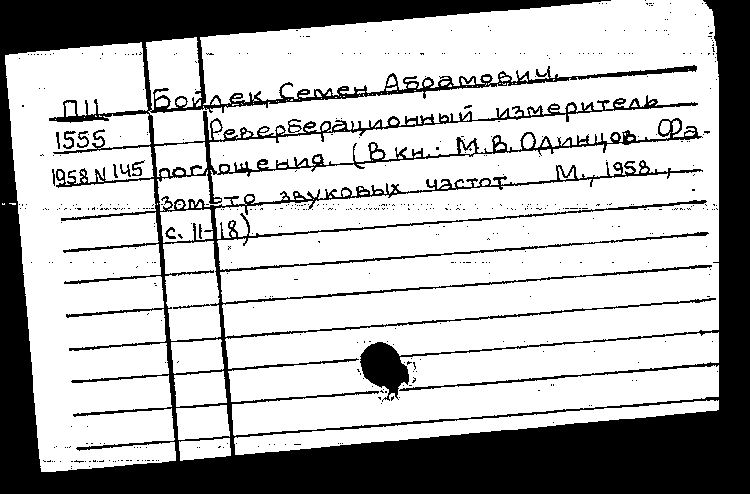 ПЦ Бойдек, Семен Абрамович.
1555 Реверберационный измеритель
1958 N 145 поглощения. (В кн.: М.В. Одинцов. Фа-
зометр звуковых частот. М., 1958.,
с. 11-18).